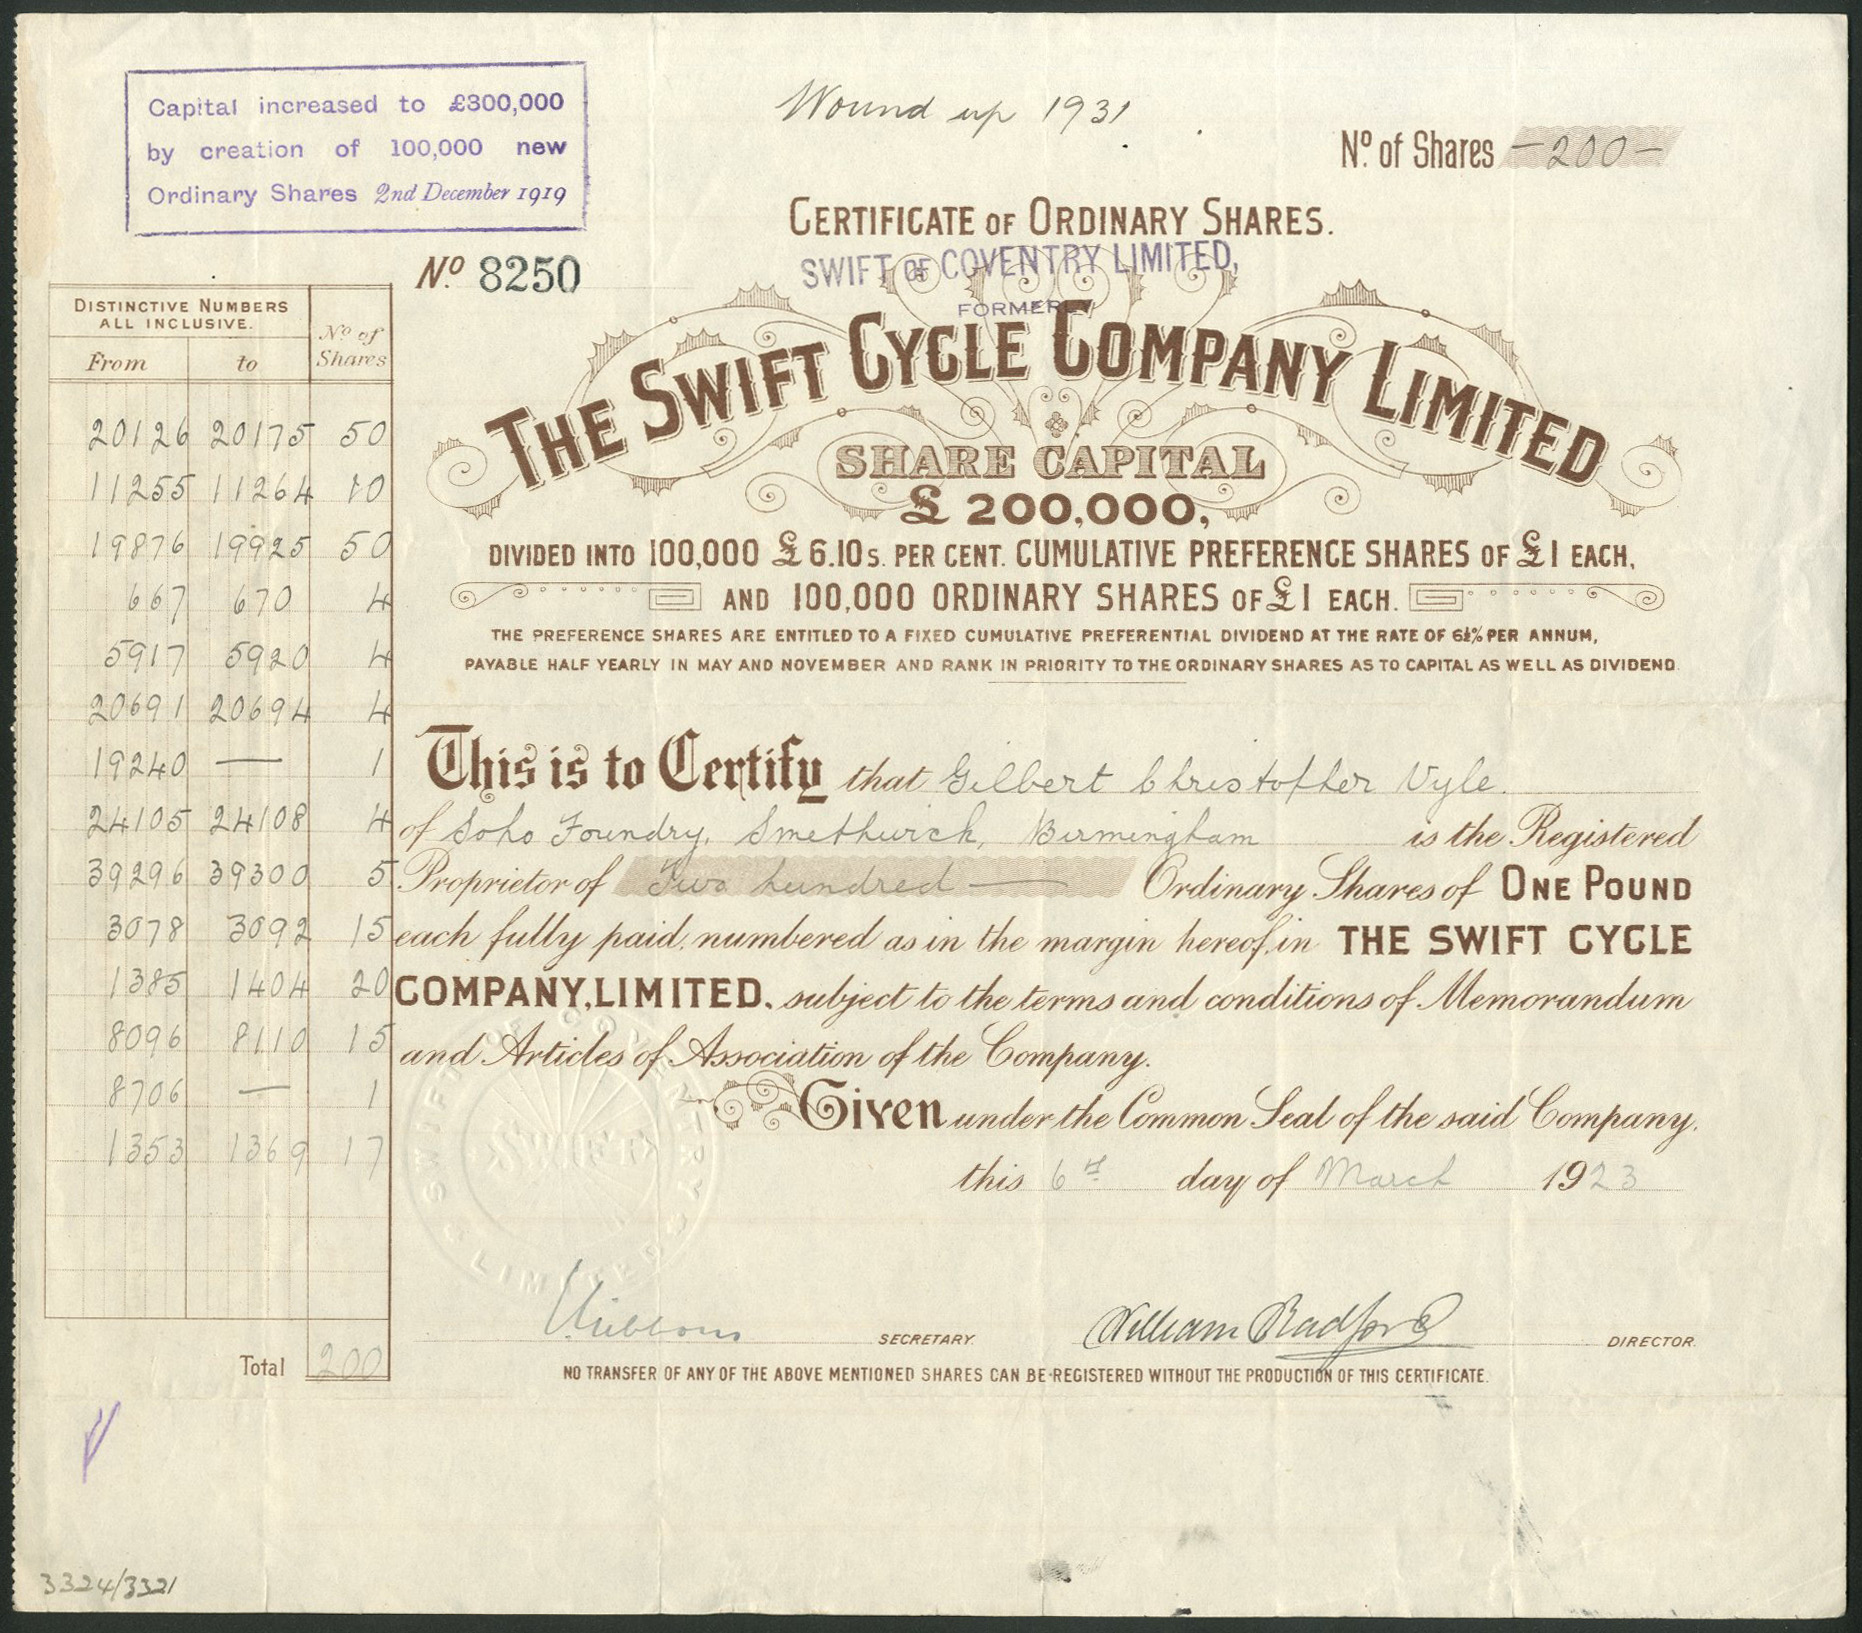 Capital increased to £300,000
by creation of 100,000 new
Ordinary Shares 2nd December 1919
Wound up 1931
No. of Shares —200—
CERTIFICATE OF ORDINARY SHARES.
SWIFT OF COVENTRY LIMITED,
FORMERLY
No. 8250
THE SWIFT CYCLE COMPANY LIMITED
SHARE CAPITAL
£200,000,
DIVIDED INTO 100,000 £6.10s. PER CENT. CUMULATIVE PREFERENCE SHARES OF £1 EACH,
AND 100,000 ORDINARY SHARES OF £1 EACH.
THE PREFERENCE SHARES ARE ENTITLED TO A FIXED CUMULATIVE PREFERENTIAL DIVIDEND AT THE RATE OF 6½% PER ANNUM,
PAYABLE HALF YEARLY IN MAY AND NOVEMBER AND RANK IN PRIORITY TO THE ORDINARY SHARES AS TO CAPITAL AS WELL AS DIVIDEND.
DISTINCTIVE NUMBERS
ALL INCLUSIVE.
No. of
Shares
From to
20126 20175 50
11255 11264 10
19876 19925 50
667 670 4
5917 5920 4
20691 20694 4
19240 — 1
24105 24108 4
39296 39300 5
3078 3092 15
1385 1404 20
8096 8110 15
8706 — 1
1353 1369 17
Total 200
This is to Certify that Gilbert Christopher Vyle.
of Soho Foundry, Smethwick, Birmingham is the Registered
Proprietor of Two hundred — Ordinary Shares of ONE POUND
each fully paid, numbered as in the margin hereof, in THE SWIFT CYCLE
COMPANY, LIMITED, subject to the terms and conditions of Memorandum
and Articles of Association of the Company.
Given under the Common Seal of the said Company,
this 6th day of March 1923
SWIFT OF COVENTRY LIMITED
SWIFT
SECRETARY.
William Radford DIRECTOR.
NO TRANSFER OF ANY OF THE ABOVE MENTIONED SHARES CAN BE REGISTERED WITHOUT THE PRODUCTION OF THIS CERTIFICATE.
3324/3321